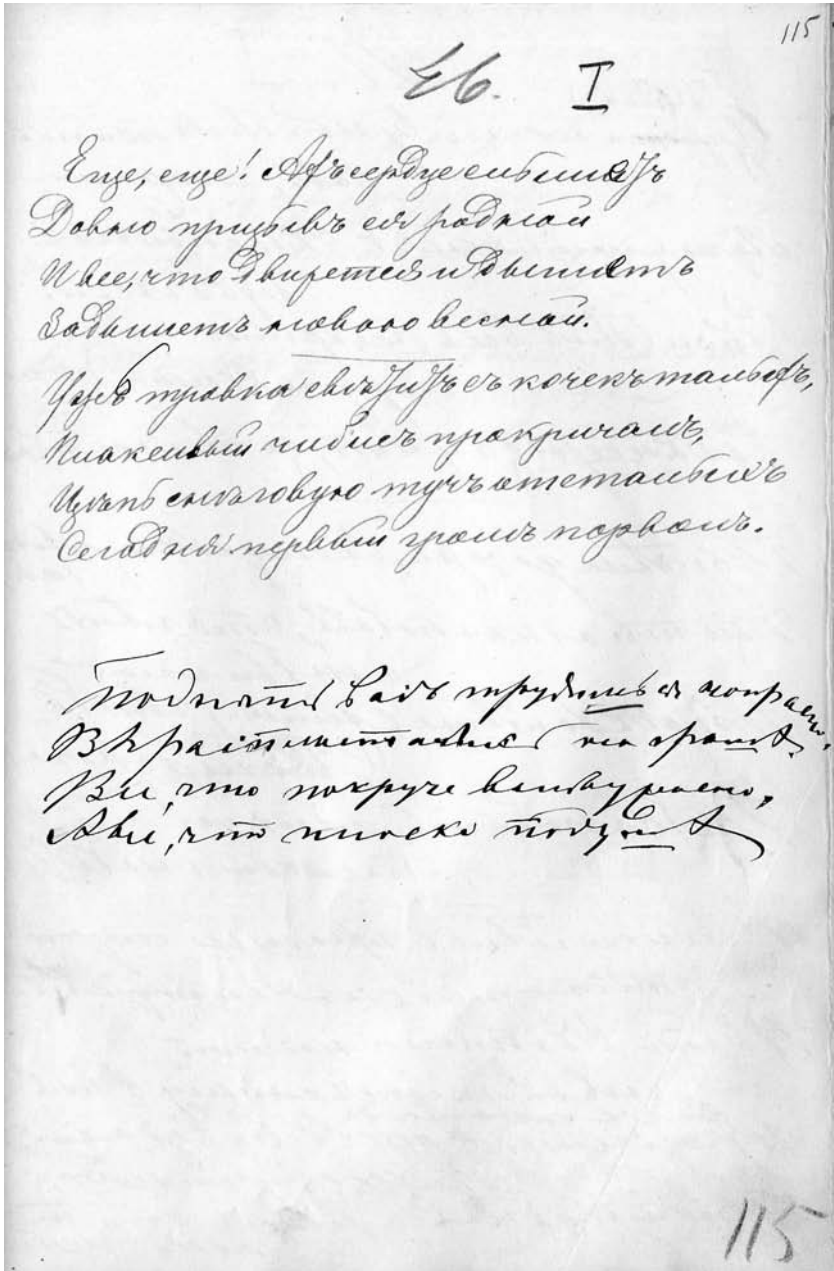 115
46. I
Еще, еще! Ахъ сердце слышитъ
Давно призывъ ея родной
И все, что движется и дышетъ
Задышетъ новою весной.
Ужъ травка свѣтитъ съ кочекъ талыхъ,
Плаксивый чибисъ прокричалъ,
Цѣпь снѣговую тучъ отсталыхъ
Сегодня первый громъ порвалъ.
Поднять васъ трудишься напрасно,
на
Вы, что покруче
А вы, что
115